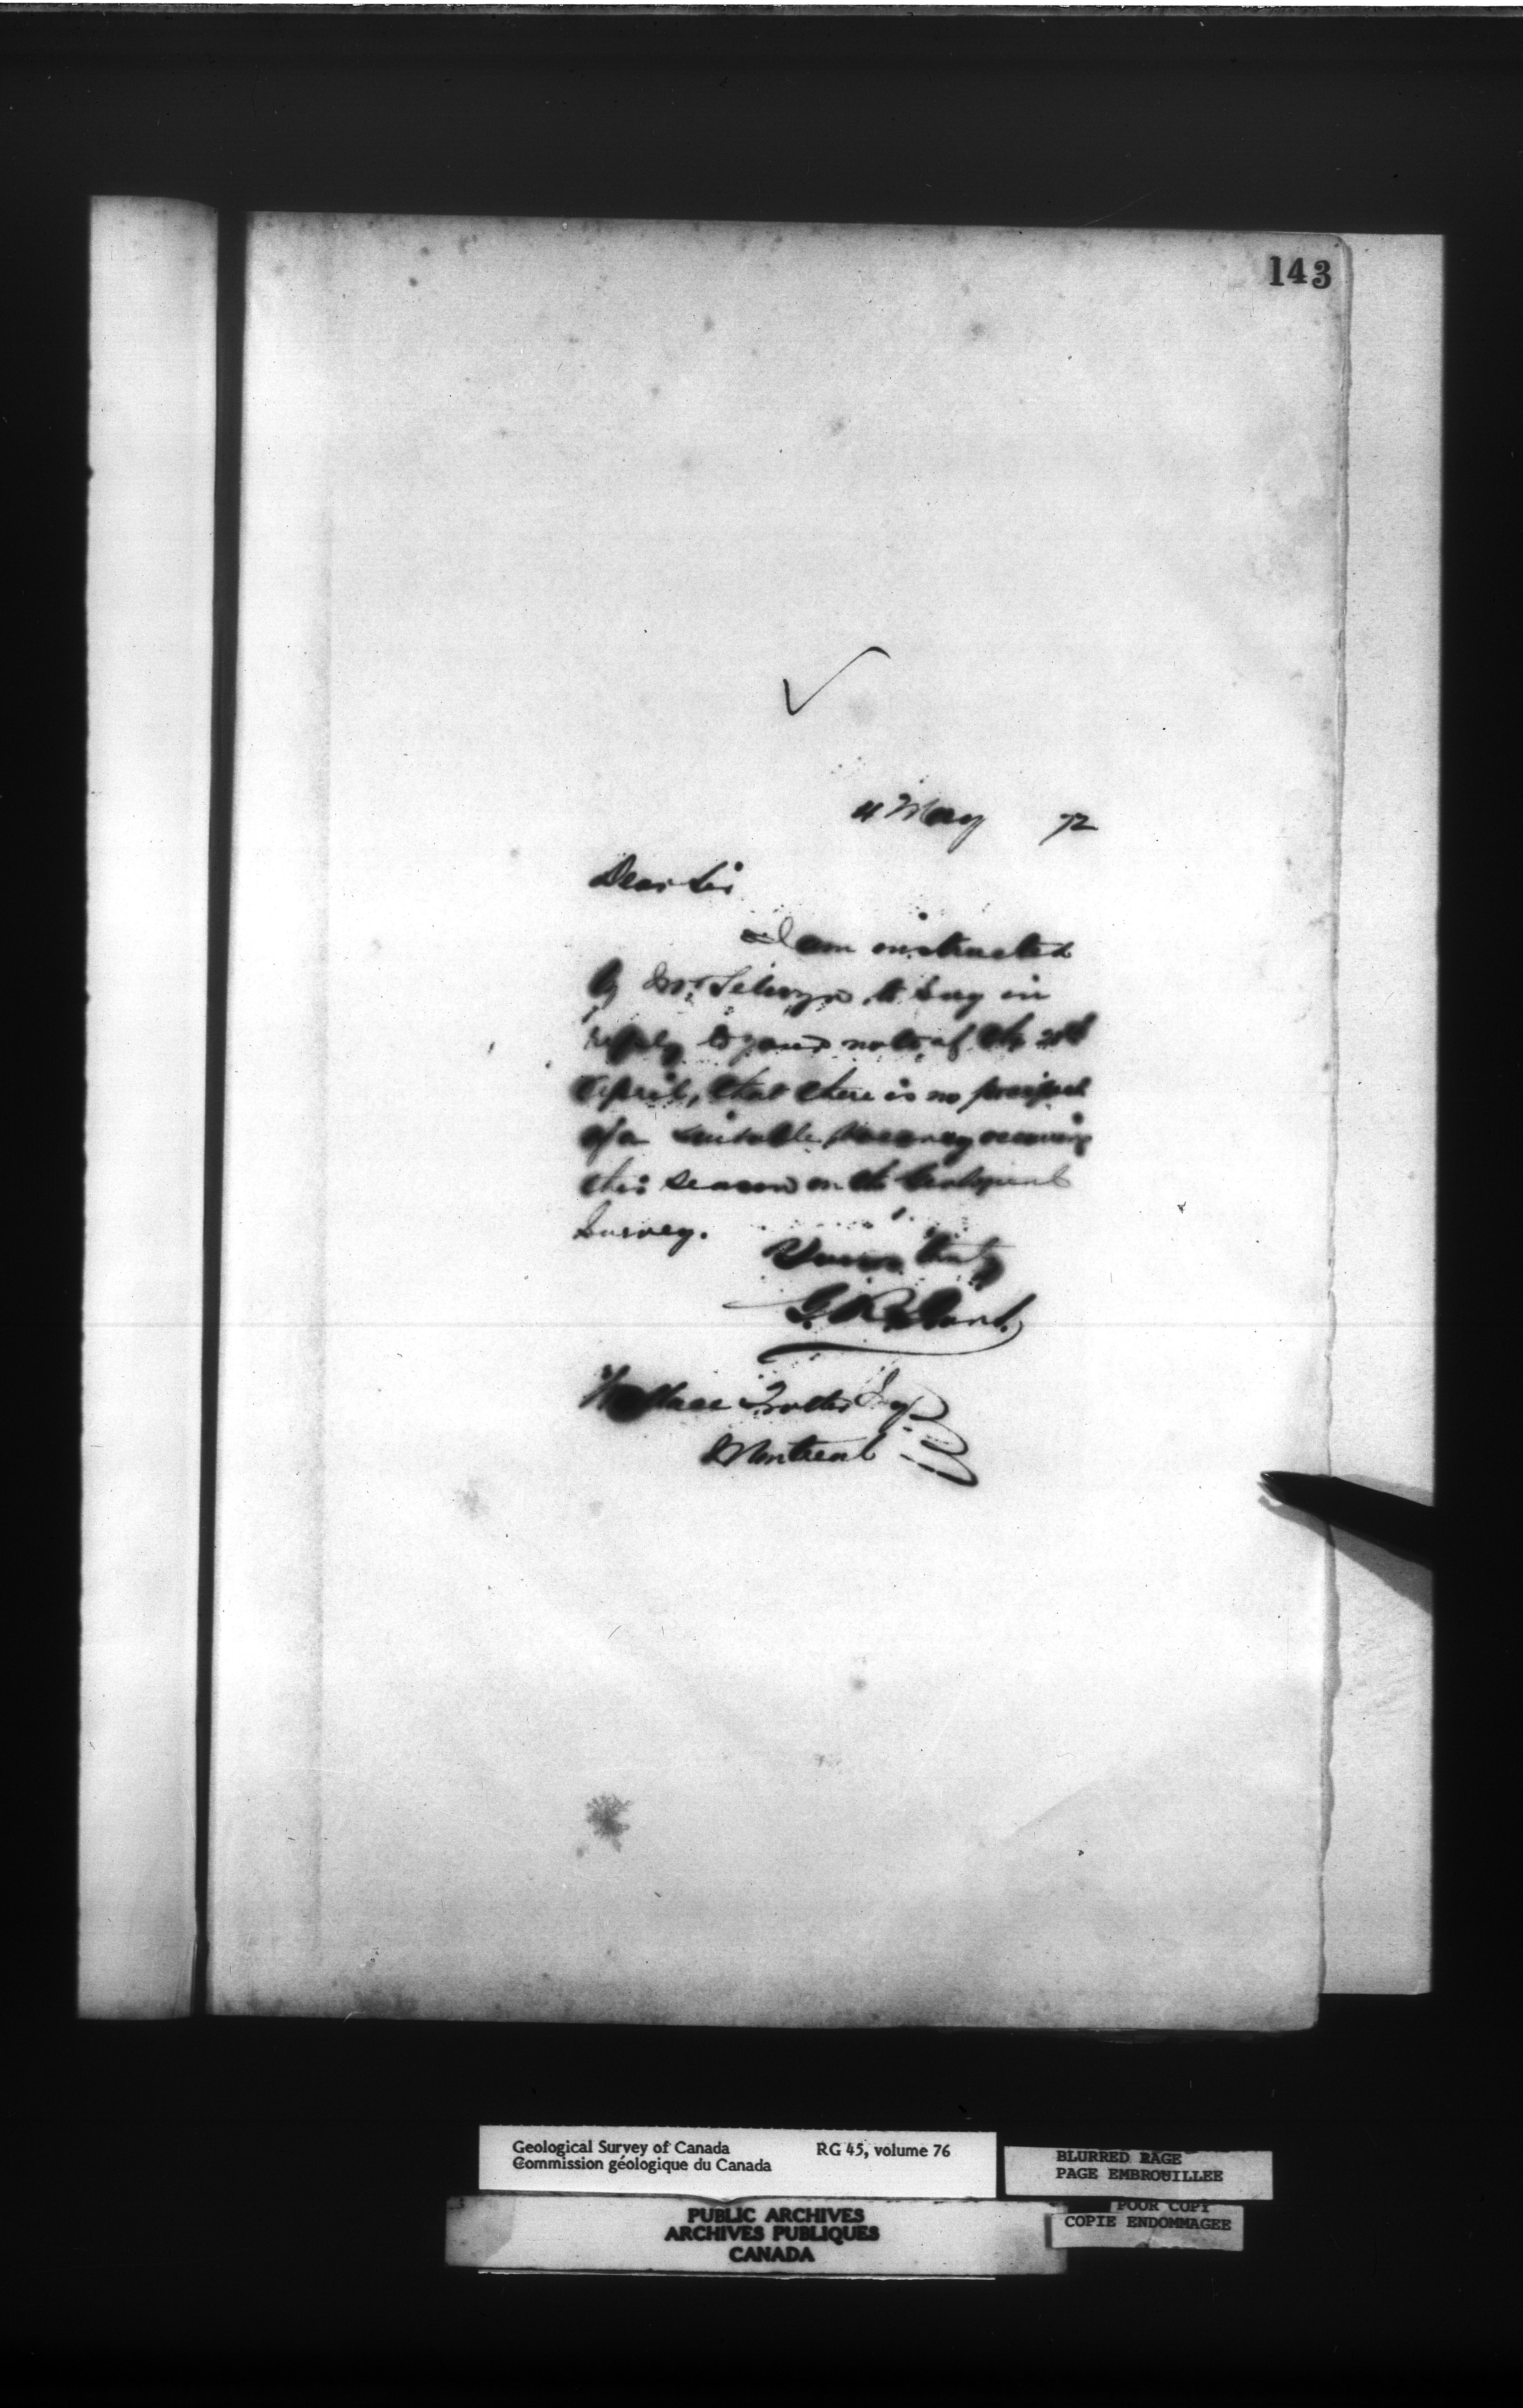 143
4 May 72
Dear Sir
I am instructed
by Mr. Selwyn to say in
reply to your note of the
April, that there is no prospect
of a suitable vacancy occurring
this season on the Geological
Survey.
Yours truly
G. R. Grant.
Wallace Trotter Esq
Montreal
Geological Survey of Canada RG 45, volume 76
Commission géologique du Canada
BLURRED PAGE
PAGE EMBROUILLEE
POOR COPY
COPIE ENDOMMAGEE
PUBLIC ARCHIVES
ARCHIVES PUBLIQUES
CANADA